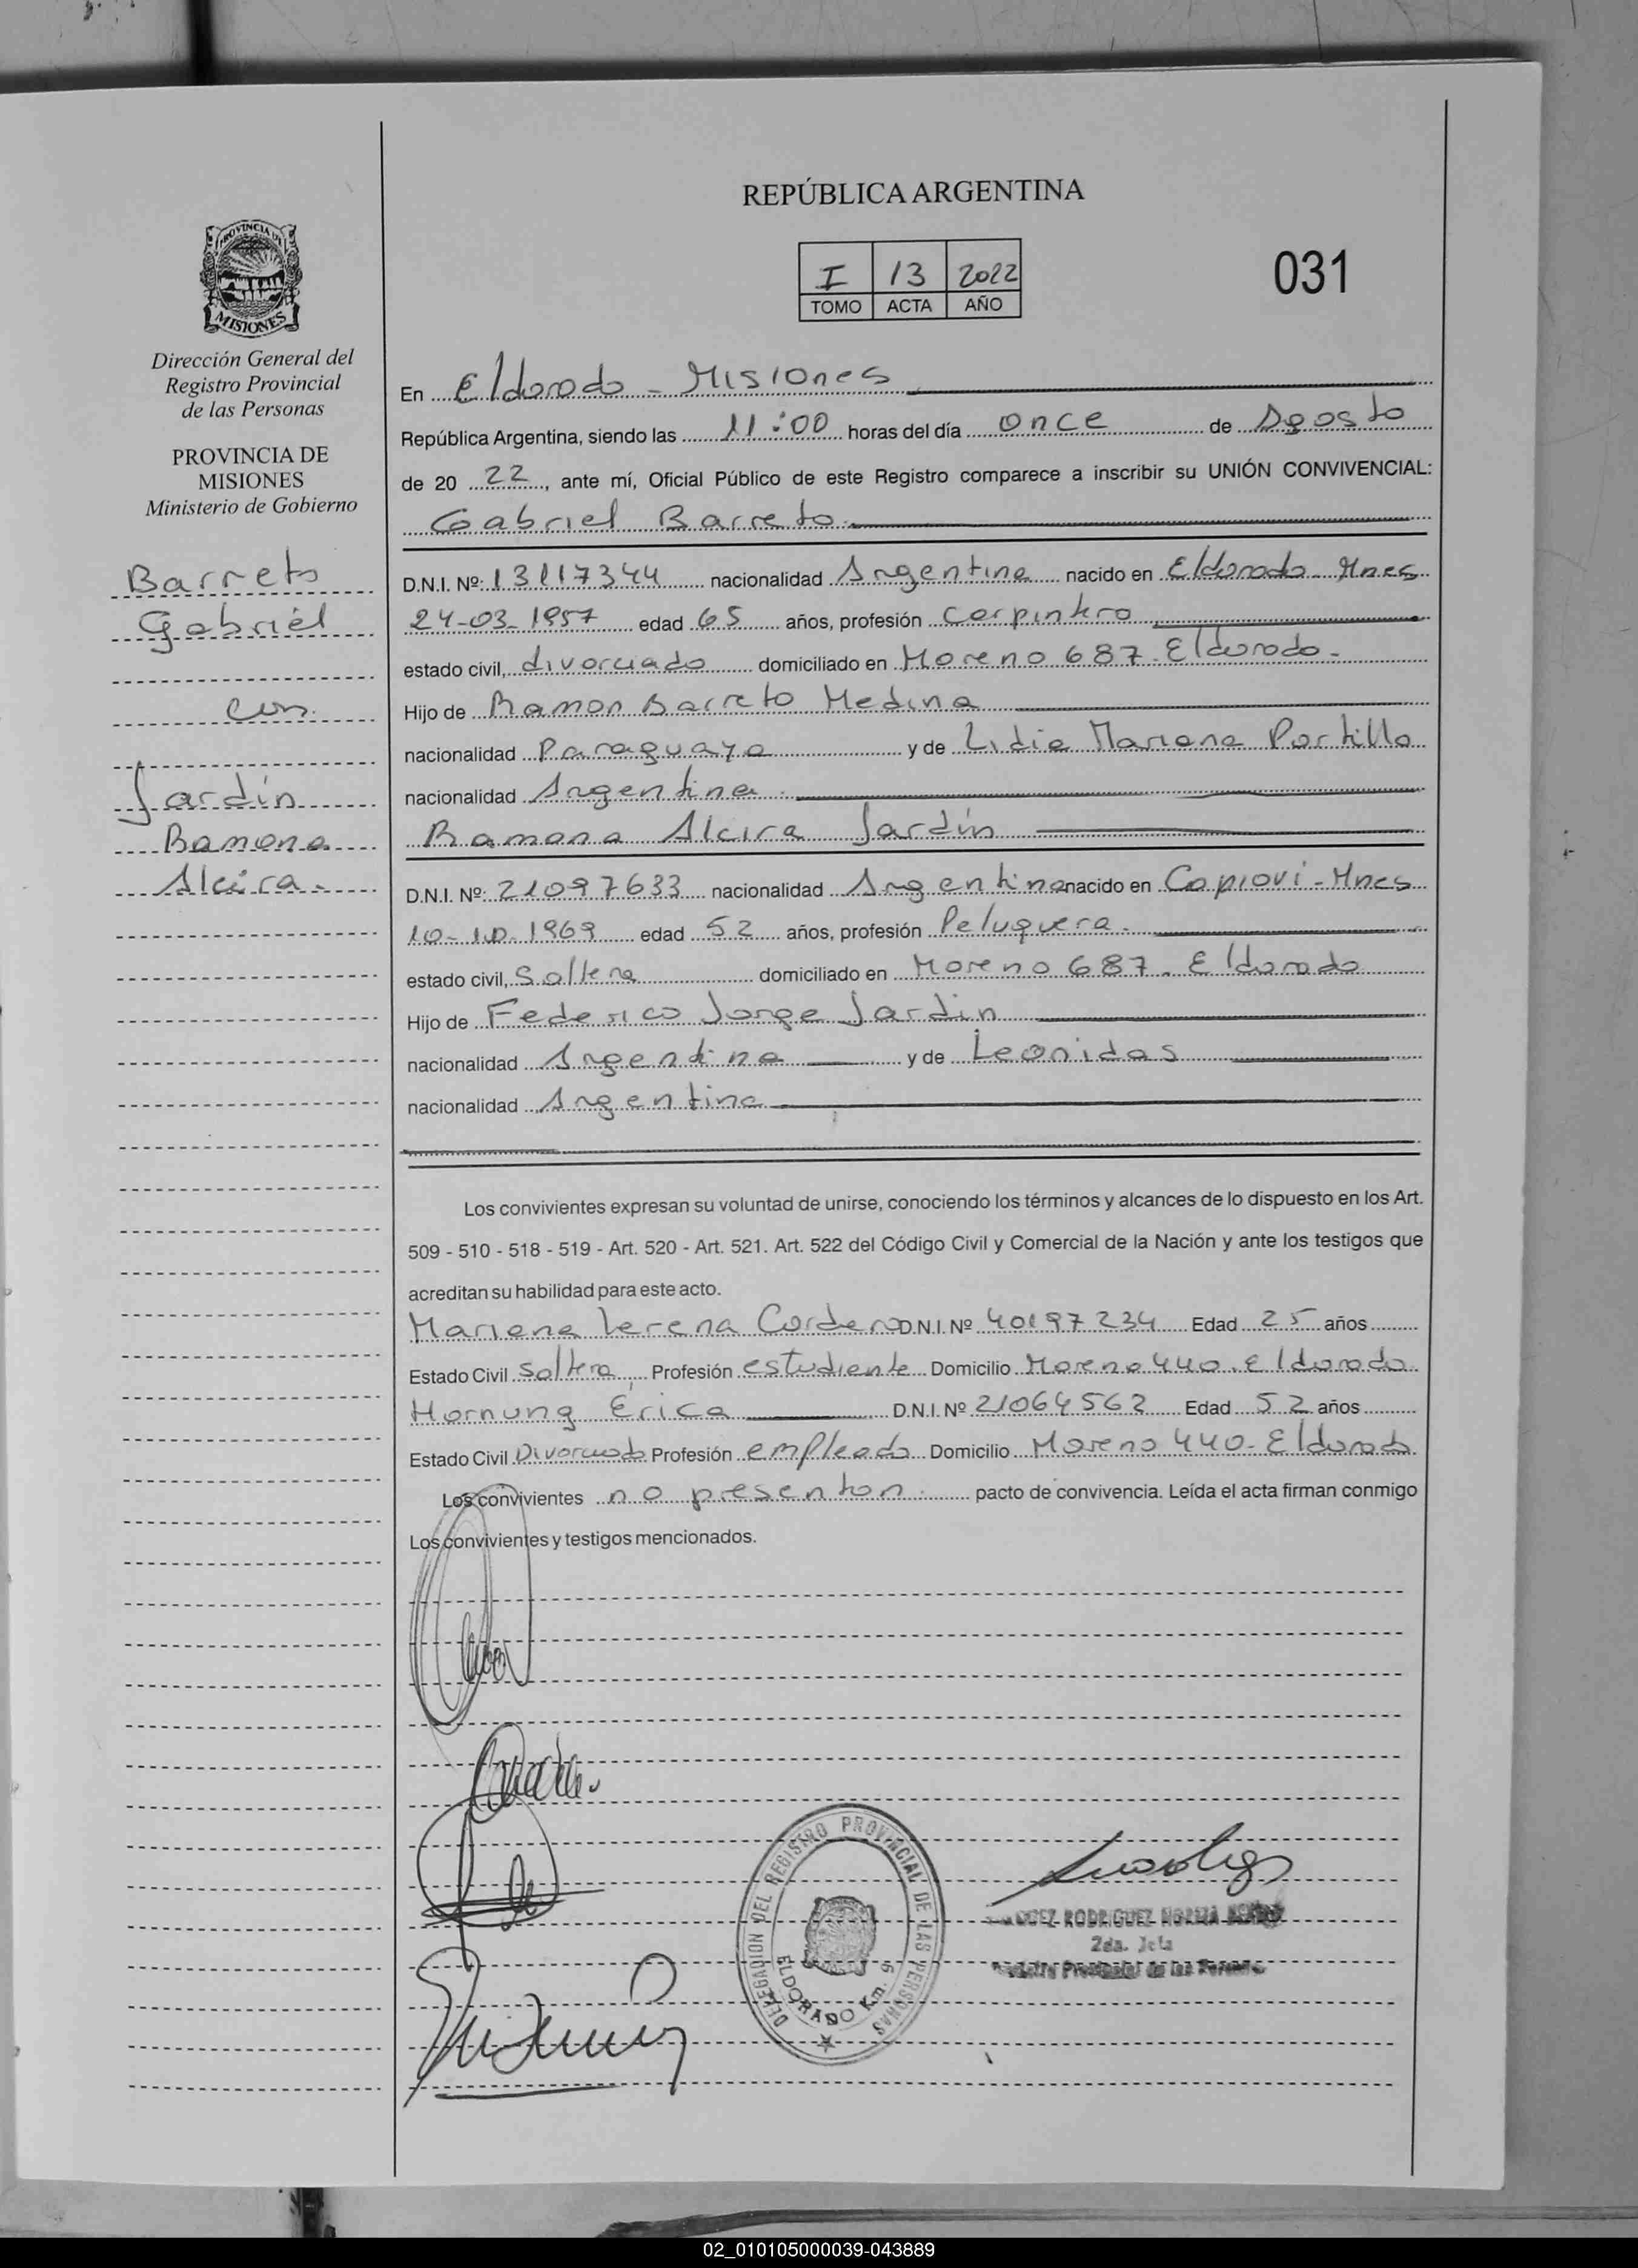 REPÚBLICA ARGENTINA
I 13 2022
TOMO ACTA AÑO
031
PROVINCIA DE
MISIONES
Dirección General del
Registro Provincial
de las Personas
PROVINCIA DE
MISIONES
Ministerio de Gobierno
Barreto
Gabriel
con
Jardin
Ramona
Alcira.
En Eldorado - Misiones
República Argentina, siendo las 11:00 horas del día once de Agosto
de 20 22, ante mí, Oficial Público de este Registro comparece a inscribir su UNIÓN CONVIVENCIAL:
Gabriel Barreto
D.N.I. Nº: 13117344 nacionalidad Argentina nacido en Eldorado - Mnes
24-03-1957 edad 65 años, profesión Carpintero
estado civil, divorciado domiciliado en Moreno 687 - Eldorado -
Hijo de Ramon Barreto Medina
nacionalidad Paraguaya y de Lidia Mariana Portillo
nacionalidad Argentina
Ramona Alcira Jardin
D.N.I. Nº: 21097633 nacionalidad Argentina nacido en Capiovi - Mnes
10-10-1969 edad 52 años, profesión Peluquera.
estado civil, soltera domiciliado en Moreno 687 - Eldorado
Hijo de Federico Jorge Jardin
nacionalidad Argentina y de Leonidas
nacionalidad Argentina
Los convivientes expresan su voluntad de unirse, conociendo los términos y alcances de lo dispuesto en los Art.
509 - 510 - 518 - 519 - Art. 520 - Art. 521. Art. 522 del Código Civil y Comercial de la Nación y ante los testigos que
acreditan su habilidad para este acto.
Mariana Verena Cordero D.N.I. Nº 40197234 Edad 25 años
Estado Civil soltera Profesión estudiante Domicilio Moreno 440 - Eldorado
Hornung Erica D.N.I. Nº 21064562 Edad 52 años
Estado Civil Divorciada Profesión empleada Domicilio Moreno 440 - Eldorado
Los convivientes no presentan pacto de convivencia. Leída el acta firman conmigo
Los convivientes y testigos mencionados.
DELEGACION DEL REGISTRO PROVINCIAL DE LAS PERSONAS
ELDORADO Km. 9
RODRIGUEZ NORMA
2da. Jefa
Provincial de las Personas
02_010105000039-043889